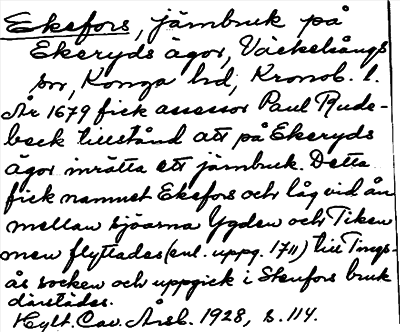 Ekefors, järnbruk på
Ekeryds ägor, Väckelsångs
sn, Konga hd, Kronob. l.
År 1679 fick assessor Paul Rude-
beck tillstånd att på Ekeryds
ägor inrätta ett järnbruk. Detta
fick namnet Ekefors och låg vid ån
mellan sjöarna Ygden och Tiken
men flyttades (enl. uppg. 1711) till Tings-
ås socken och uppgick i Stenfors bruk
därstädes.
Hylt. Cav. Årsb. 1928, s. 114.